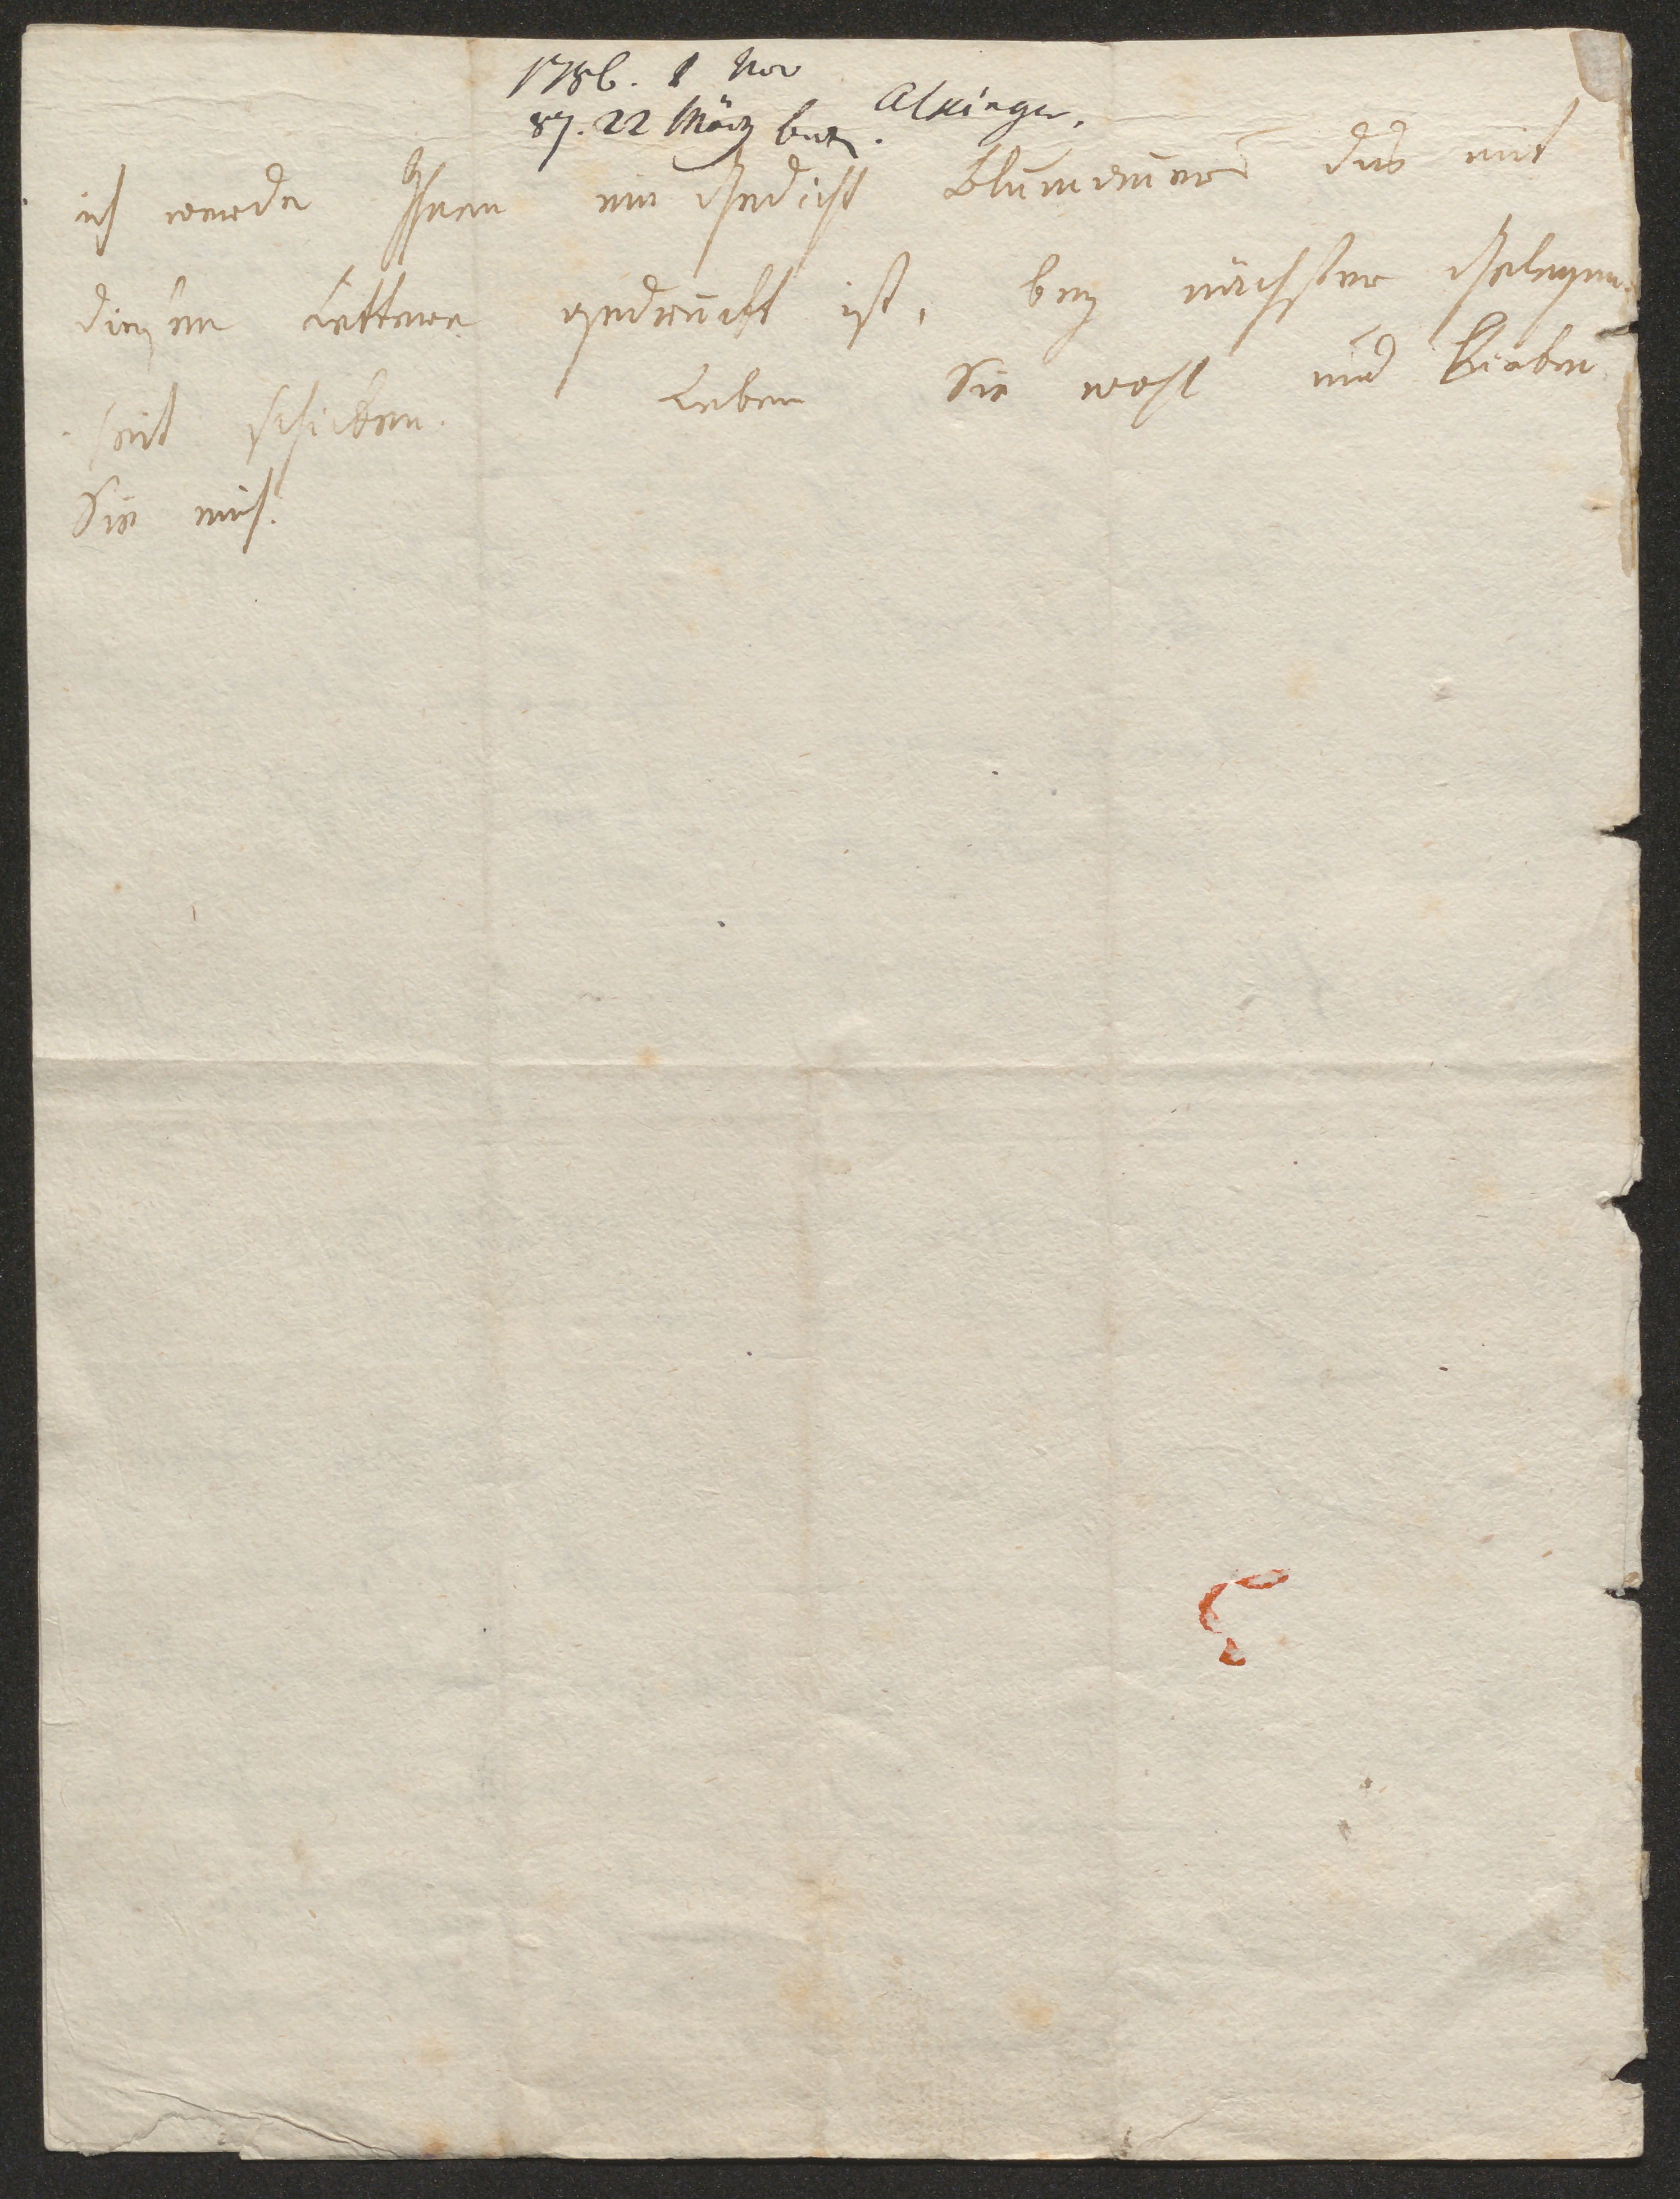 1786. 1 Nov
87. 22 März beantw. Alxinger.
ich werde Ihnen ein Gedicht Blumauers das mit
diesen Lettern gedruckt ist, bey nächster Gelegen¬
heit schicken. Leben Sie wohl und lieben
Sie mich.